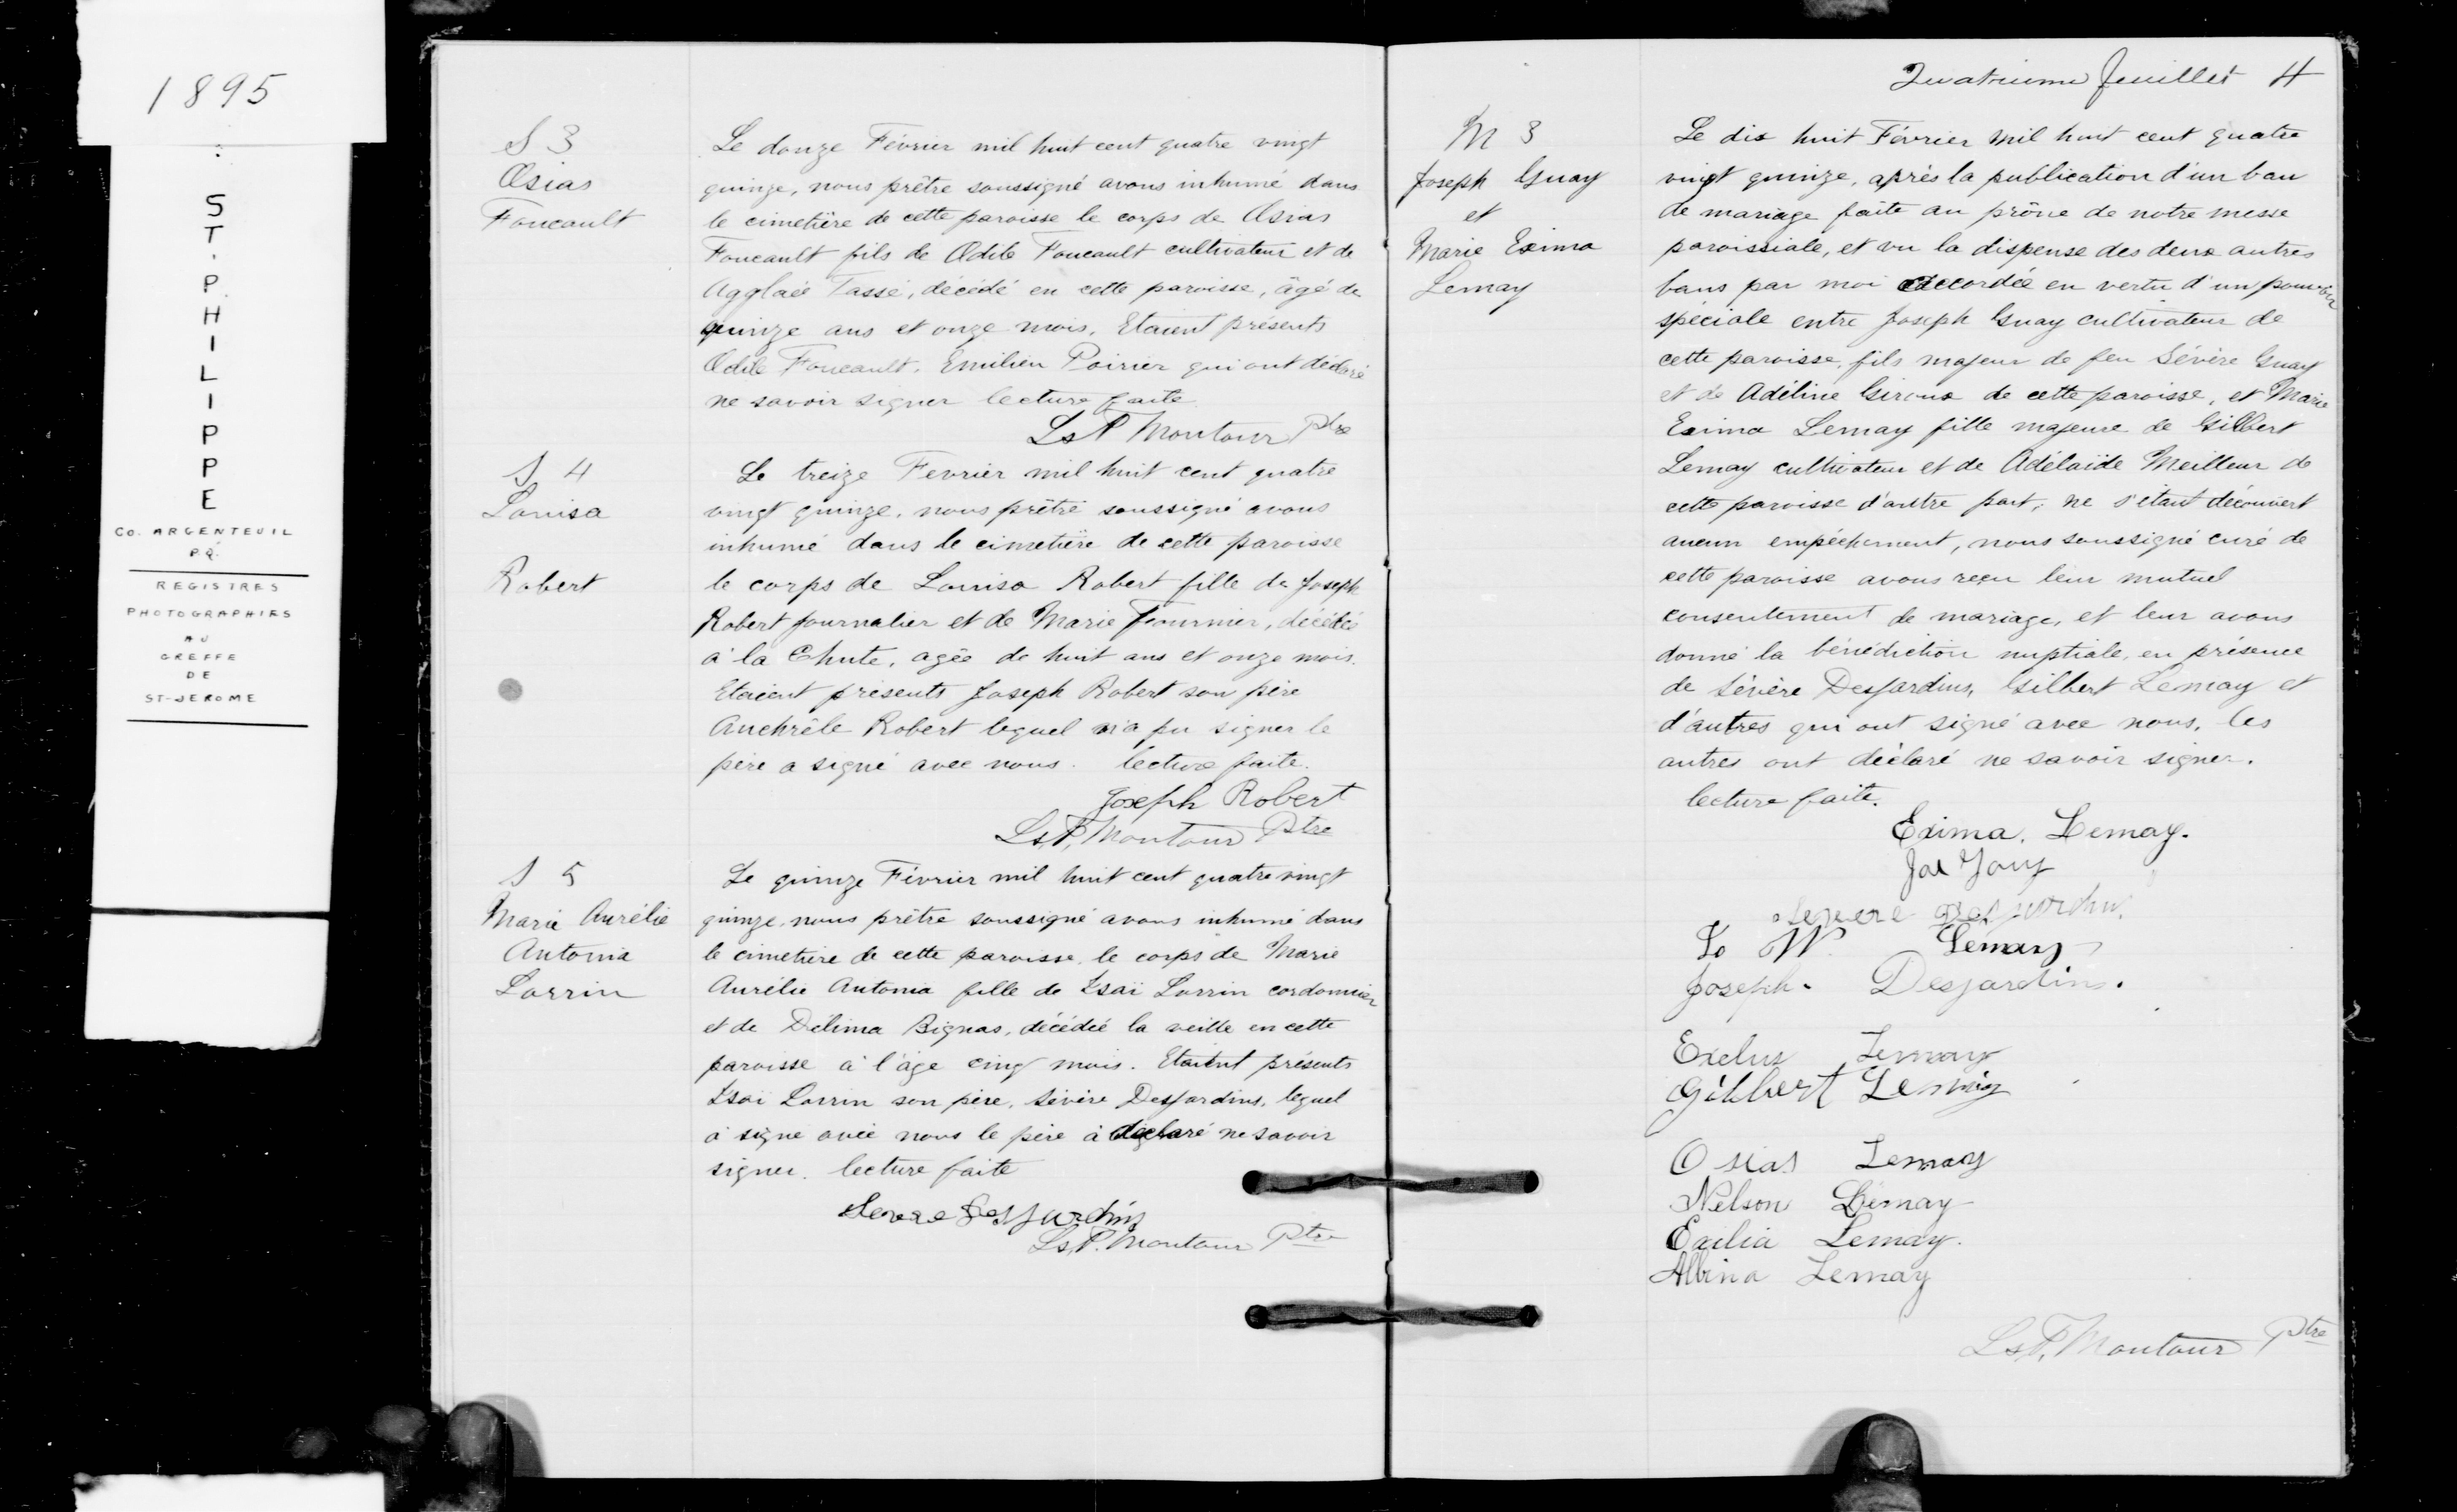 1895
ST. PHILIPPE
CO. ARGENTEUIL
P.Q.
REGISTRES
PHOTOGRAPHIES
AU
GREFFE
DE
ST-JEROME
S 3
Osias
Foucault
Le douze Février mil huit cent quatre vingt
quinze, nous prêtre soussigné avons inhumé dans
le cimetière de cette paroisse le corps de Osias
Foucault fils de Odile Foucault cultivateur et de
Agglaée Tassé, décédé en cette paroisse, âgé de
quinze ans et onze mois. Etaient présents
Odile Foucault, Emilien Poirier qui ont déclaré
ne savoir signer lecture faite
Ls P. Montour Ptre
S 4
Louisa
Robert
Le treize Fevrier mil huit cent quatre
vingt quinze, nous prêtre soussigné avons
inhumé dans le cimetière de cette paroisse
le corps de Louisa Robert fille de Joseph
Robert journalier et de Marie Fournier, décédée
à la Chute, agée de huit ans et onze mois.
Etaient présents Joseph Robert son père
Robert lequel n'a pu signer le
père a signé avec nous. lecture faite.
Joseph Robert
Ls P. Montour Ptre
S 5
Marie Aurélie
Antonia
Lorrin
Le quinze Février mil huit cent quatre vingt
quinze, nous prêtre soussigné avons inhumé dans
le cimetière de cette paroisse, le corps de Marie
Aurélie Antonia fille de Isaï Lorrin cordonnier
et de Délima Bignas, décédée la veille en cette
paroisse à l'âge cinq mois. Etaient présents
Isaï Lorrin son père, Sévère Desjardins, lequel
à signé avec nous le père à déclaré ne savoir
signer. lecture faite
Severe Desjardins
Ls P. Montour Ptre
Quatrieme feuillet 4
M 3
Joseph Guay
et
Marie Exima
Lemay
Le dix huit Février mil huit cent quatre
vingt quinze, après la publication d'un ban
de mariage faite au prône de notre messe
paroissiale, et vu la dispense des deux autres
bans par moi accordée en vertu d'un pouvoir
spéciale entre Joseph Guay cultivateur de
cette paroisse, fils majeur de feu Sévère Guay
et de Adéline Giroux de cette paroisse, et Marie
Exima Lemay fille majeure de Gilbert
Lemay cultivateur et de Adélaïde Meilleur de
cette paroisse d'autre part, ne s'étant découvert
aucun empéchement, nous soussigné curé de
cette paroisse avons reçu leur mutuel
consentement de mariage, et leur avons
donné la bénédiction nuptiale, en présence
de Sévère Desjardins, Gilbert Lemay et
d'autres qui ont signé avec nous, les
autres ont déclaré ne savoir signer.
lecture faite.
Exima. Lemay.
Severe Desjardins
W. Lemay
Joseph. Desjardins.
Lemay
Gilbert Lemay
Osias Lemay
Nelson Lémay
Exilia Lemay.
Albina Lemay
Ls P. Montour Ptre